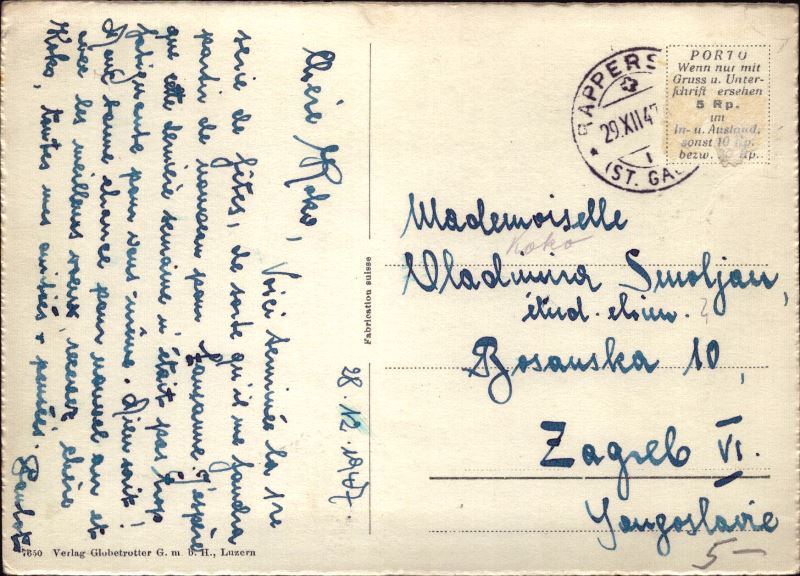 28.12.1947.
Chère Koko, Voici terminée la 1re
série de fêtes, de sorte qu'il me faudra
partir de nouveau pour Lausanne. J'espère
que cette dernière semaine n'était pas trop
fatiguante pour vous-même. Bien soit!
Avec bonne chance pour nouvel an et
avec les meilleurs voeux, recevez, chère
Koko, toutes mes amitiés + pensées.
PORTO
Wenn nur mit
Gruss u. Unter-
schrift ersehen
5 Rp.
im
In- u. Ausland,
sonst 10 Rp.
bezw. Rp.
RAPPERS
29.XII.47
(ST. GA
Mademoiselle
Koko
Vladimira Smoljan,
étud.
Bosanska 10,
Zagreb VI.
Yougoslavie
5—
Fabrication suisse
7650 Verlag Globetrotter G. m. b. H., Luzern